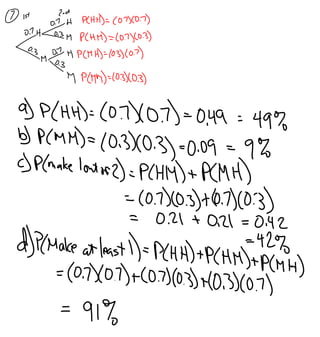 7) 1st 2nd
0.7 H P(HH)=(0.7)(0.7)
0.7 H 0.3 M P(HM)=(0.7)(0.3)
0.3 M 0.7 H P(MH)=(0.3)(0.7)
0.3 M P(MM)=(0.3)(0.3)
a) P(HH)=(0.7)(0.7)=0.49 = 49%
b) P(MM)=(0.3)(0.3)=0.09 = 9%
c) P(make 1 out of 2)=P(HM)+P(MH)
=(0.7)(0.3)+(0.7)(0.3)
= 0.21 + 0.21 = 0.42
=42%
d) P(Make at least 1)=P(HH)+P(HM)+P(MH)
=(0.7)(0.7)+(0.7)(0.3)+(0.3)(0.7)
= 91%